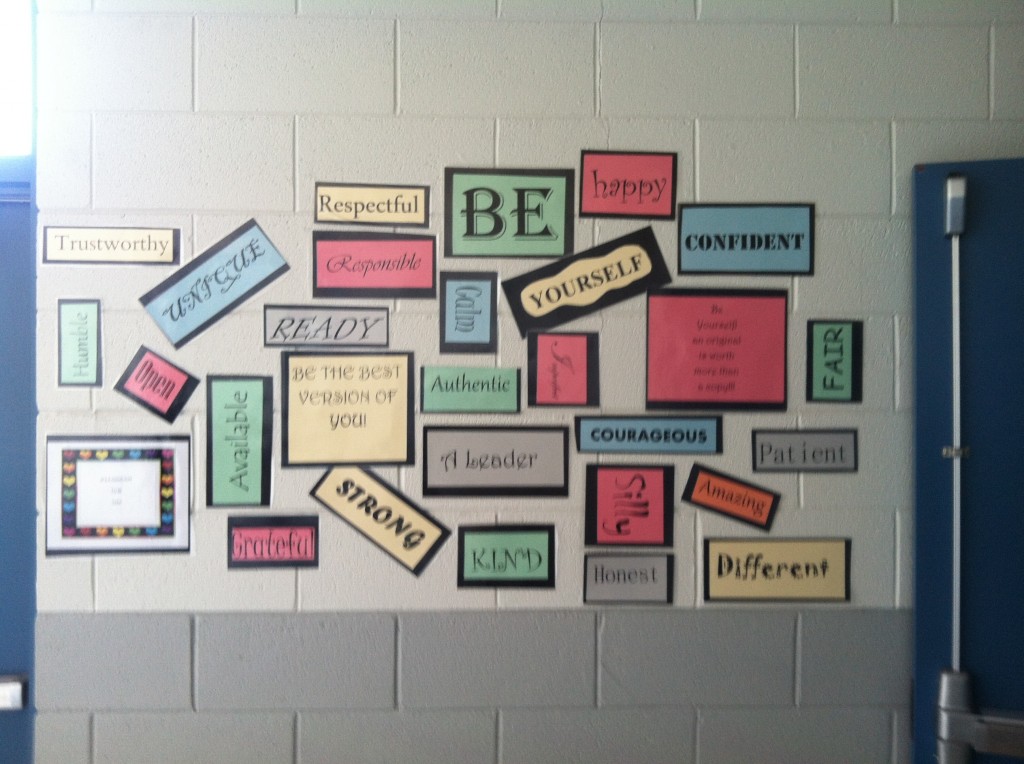 happy
Respectful
BE
Trustworthy
UNIQUE
Responsible
CONFIDENT
YOURSELF
Calm
READY
Humble
Be
Yourself!
an original
is worth
more than
a copy!!!
FAIR
Open
BE THE BEST
VERSION OF
YOU!
Authentic
Available
A Leader
COURAGEOUS
Patient
STRONG
Silly
Amazing
Grateful
KIND
Honest
Different